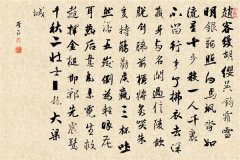 趙客縵胡纓吳鉤霜雪
明銀鞍照白馬颯沓如
流星十步殺一人千里
不留行事了拂衣去深
藏身與名閑過信陵飲
脱劍膝前橫將炙啖朱
亥持觴勸侯嬴三杯吐
然諾五嶽倒為輕眼花
耳熱後意氣素霓生救
趙揮金槌邯鄲先震驚
千秋二壯士烜赫大梁
城